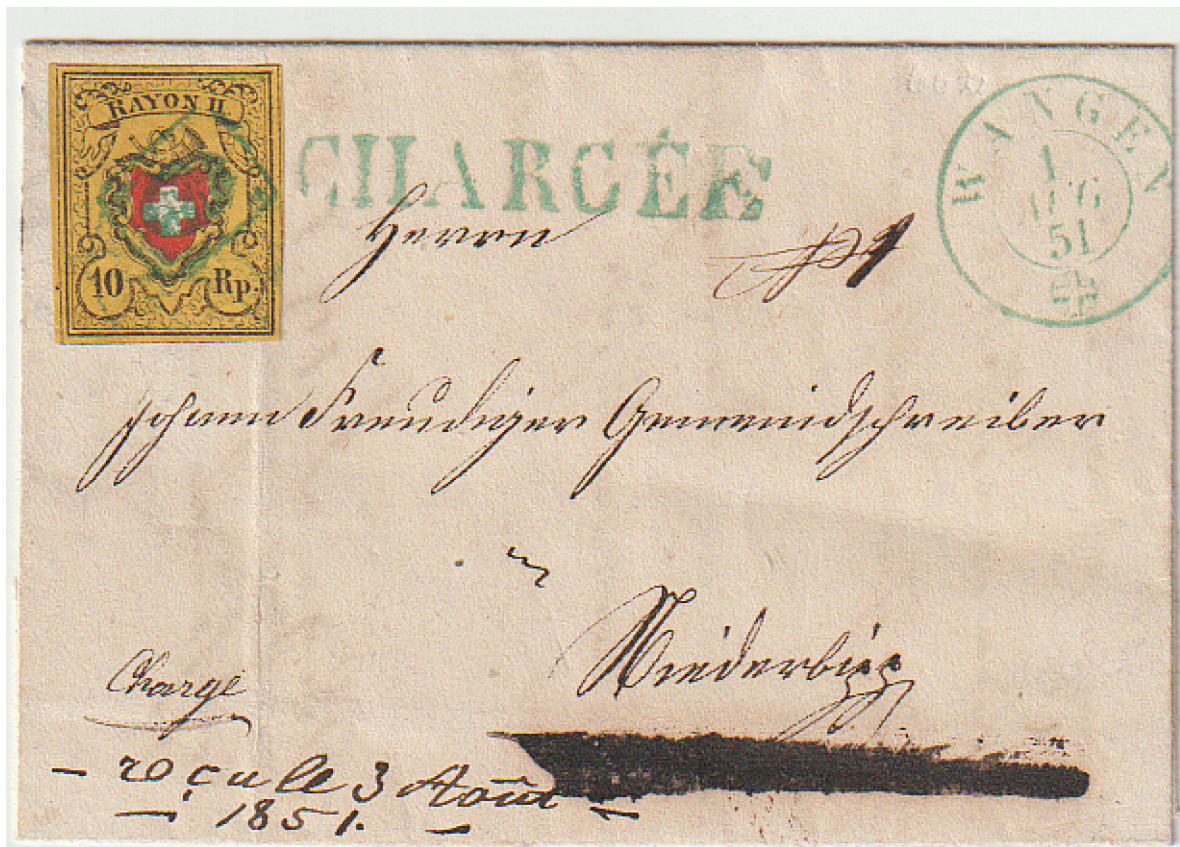 RAYON II.
10 Rp.
CHARGÉE
WANGEN
1
AUG
51
Herrn
Johann Freudiger Gemeindschreiber
in
Niederbipp
Chargé
- reçu le 3 Août -
1851.